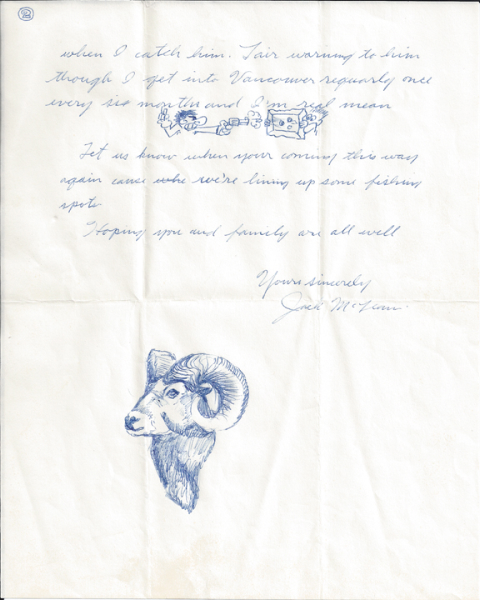 2
when I catch him. Fair warning to him
though I get into Vancouver reguarly once
every six months and I'm real mean
Let us know when your coming this way
again cause who we're lining up some fishing
spots
Hoping you and family are all well
Yours sincerely
Jack